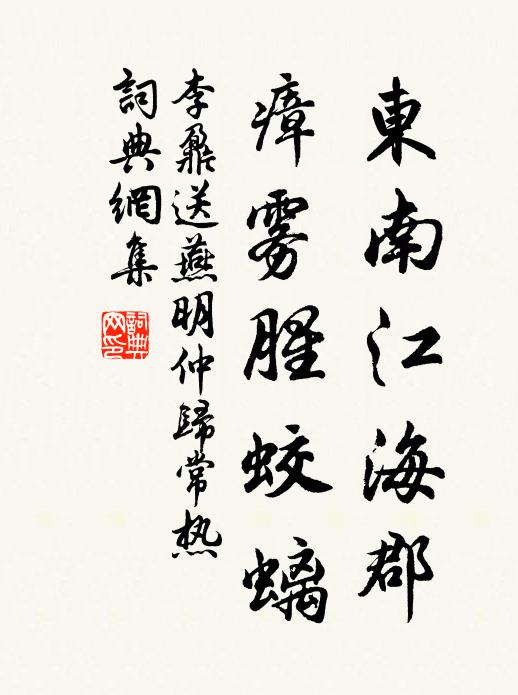 東南江海郡
瘴雾腥蛟螭
李鼐送燕明仲歸常熱
詞典網集
詞典网印